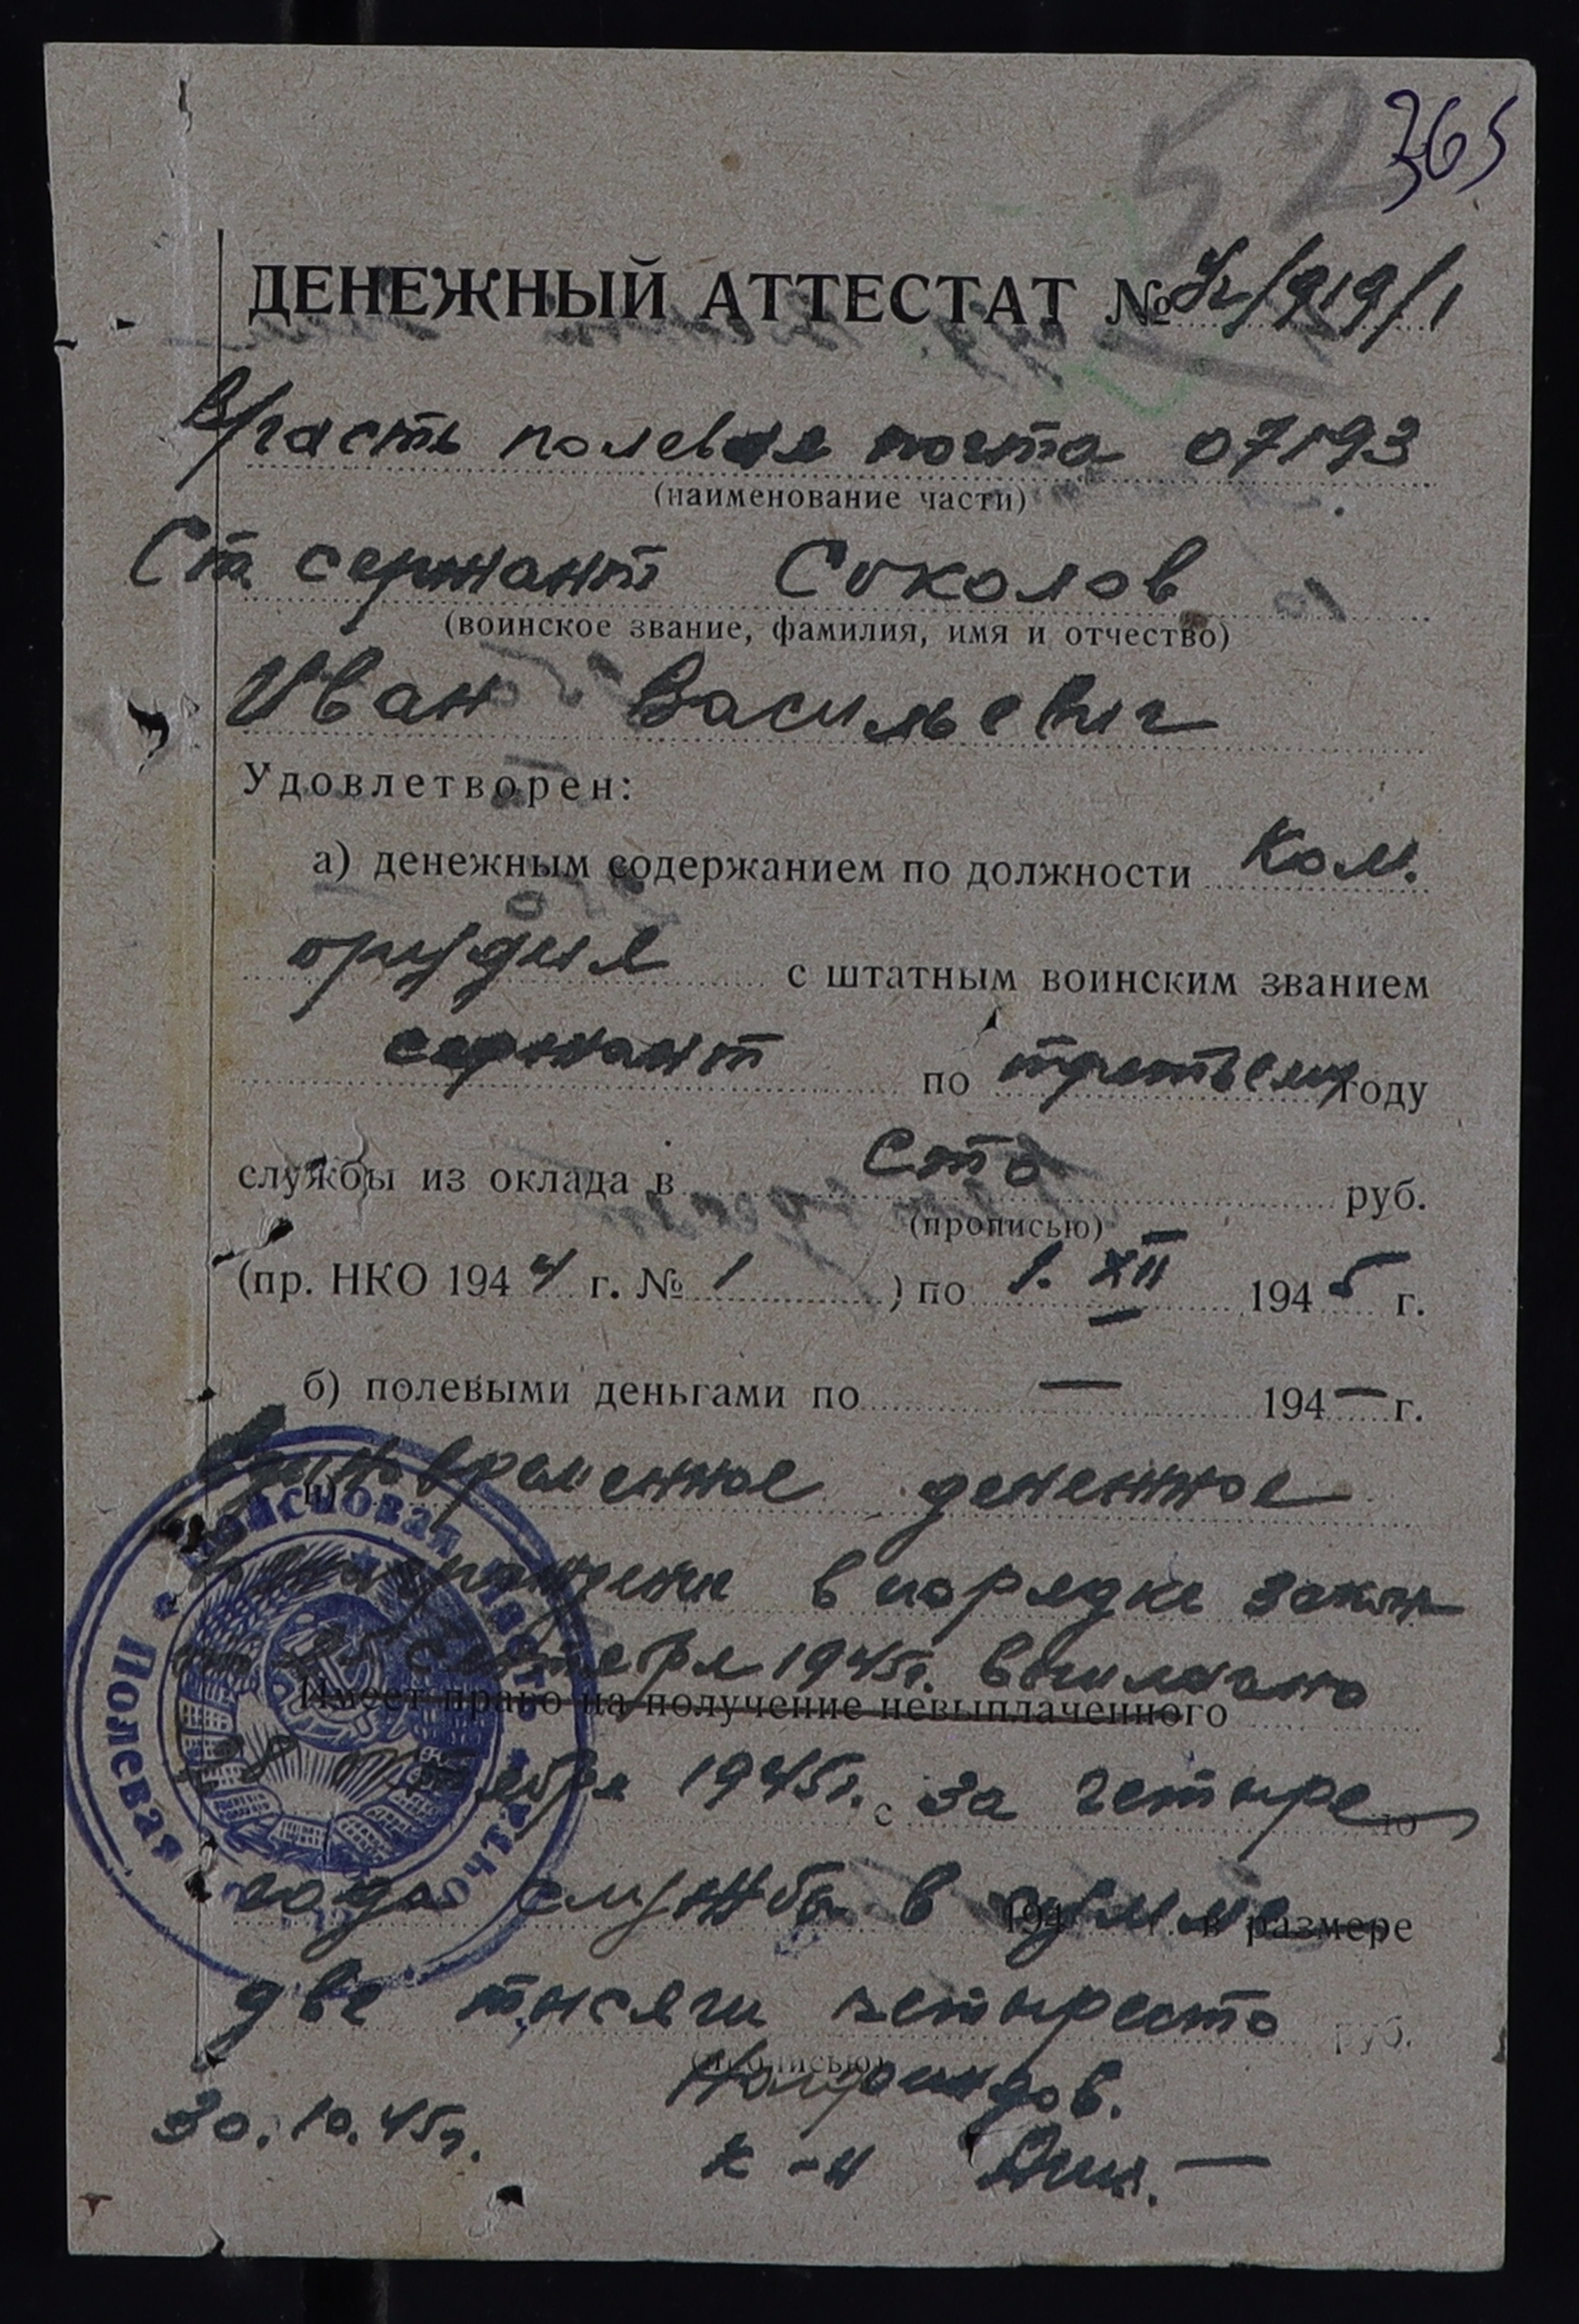 52 365
ДЕНЕЖНЫЙ АТТЕСТАТ № /919/1
В/часть полевая почта 07193
(наименование части)
Ст. сержант Соколов
(воинское звание, фамилия, имя и отчество)
Иван Васильевич
Удовлетворен:
а) денежным содержанием по должности Ком.
орудия с штатным воинским званием
сержант по третьему году
службы из оклада в Сто руб.
(прописью)
(пр. НКО 1944 г. № 1 ) по 1. XII 1945 г.
б) полевыми деньгами по — 194— г.
Единовременное денежное
в порядке закона
от 25 сентября 1945г. выплачено
Имеет право на получение невыплаченного
28 октября 1945г. с за четыре по
года службы в сумме 194 в размере
две тысячи четыреста руб.
(прописью)
Начфин
30.10.45г.
к-н
Войсковая часть
Полевая почта